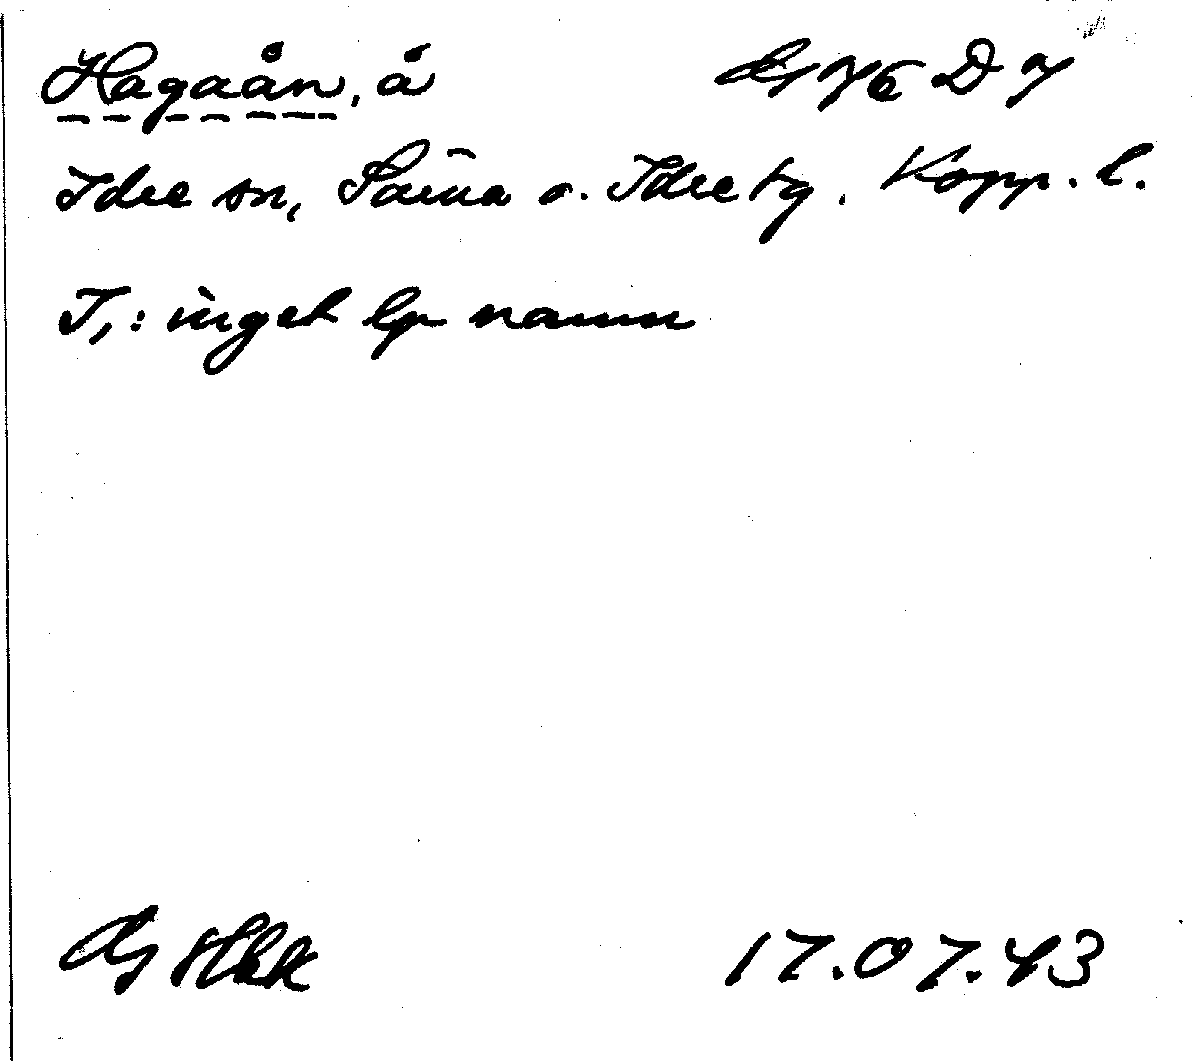 Hagaån, å
Idre sn, Särna o. Idre tg. Kopp. l.
T,: inget lp namn
17.07.43